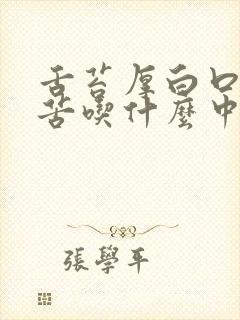 舌苔厚白口
苦喫什麼中
張學平